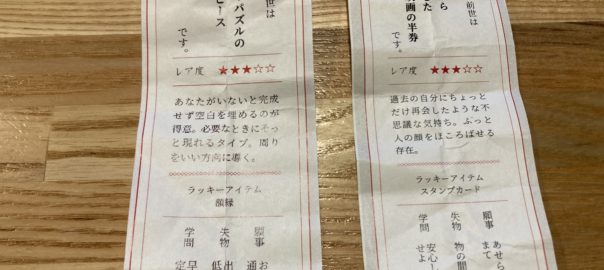 世は
パズルの
ピース
です。
レア度 ★★★☆☆
あなたがいないと完成
せず空白を埋めるのが
得意。必要なときにそっ
と現れるタイプ。周り
をいい方向に導く。
ラッキーアイテム
額縁
願事
失物
学問
前世は
ら
た
画の半券
です。
レア度 ★★★☆☆
過去の自分にちょっと
だけ再会したような不
思議な気持ち。ふっと
人の顔をほころばせる
存在。
ラッキーアイテム
スタンプカード
願事 あせら
まて
失物 物の間
学問 安心し
せよ